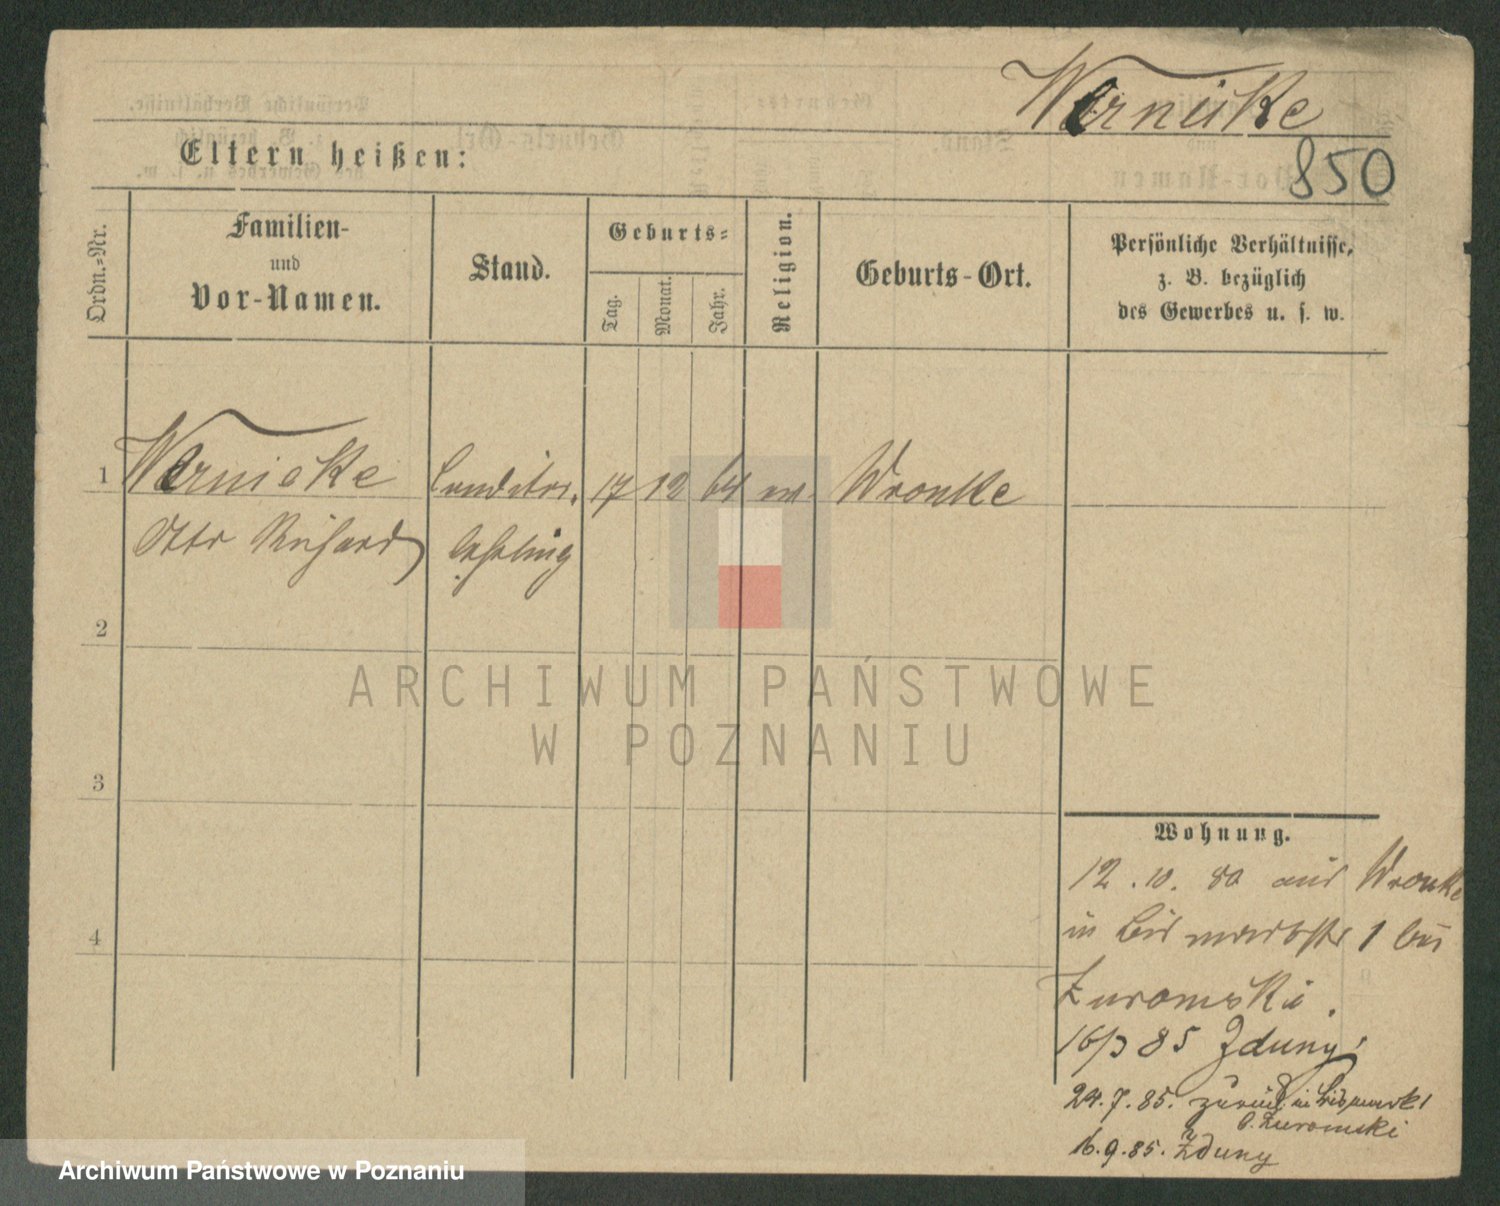 Wernicke
850
Eltern heißen:
Ordn.-Nr.
Familien-
und
Vor-Namen.
Stand.
Geburts-
Tag.
Monat.
Jahr.
Religion.
Geburts-Ort.
Persönliche Verhältnisse,
z. B. bezüglich
des Gewerbes u. s. w.
1 Wernicke Conditor 17 12 64 ev. Wronke
Otto Richard lehrling
2
ARCHIWUM PAŃSTWOWE
W POZNANIU
3
4
Wohnung.
12. 10. 80 aus Wronke
in Bismarckstr 1 bei
Zuromski.
16/3 85 Zduny
24. 7. 85. zurück in Bismarckt
b. Zuromski
16. 9. 85. Zduny
Archiwum Państwowe w Poznaniu